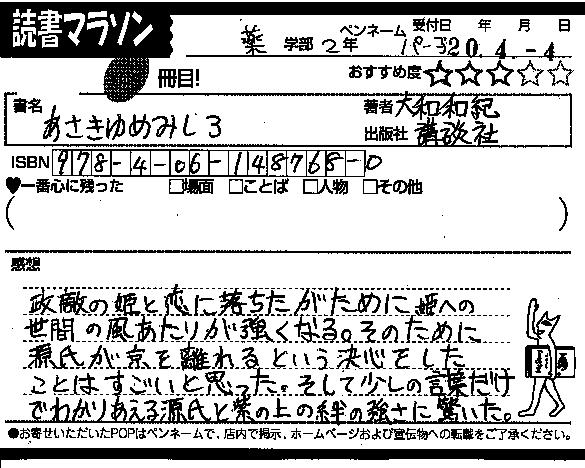 読書マラソン
薬 学部 2年 ペンネーム パーヨ 受付日 年 月 日
20.4.-4
冊目! おすすめ度 ★★★☆☆
書名 あさきゆめみし3 著者 大和和紀
出版社 講談社
ISBN 978-4-06-148768-0
♥一番心に残った □場面 □ことば □人物 □その他
( )
感想
政敵の姫と恋に落ちたがために姫への
世間の風あたりが強くなる。そのために
源氏が京を離れるという決心をした
ことはすごいと思った。そして少しの言葉だけ
でわかりあえる源氏と紫の上の絆の強さに驚いた。
●お寄せいただいたPOPはペンネームで、店内で掲示、ホームページおよび宣伝物への転載をご了承ください。